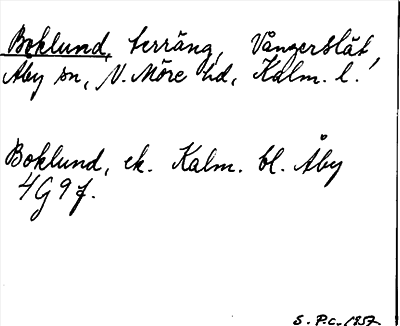 Boklund, terräng, Vångerslät,
Åby sn, N. Möre hd, Kalm. l.
Boklund, ek. Kalm. bl. Åby
4G9f.
S. P.C. 1957